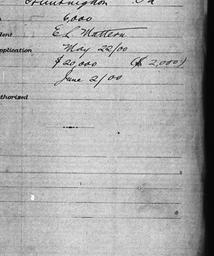 Huntingdon Pa
6,000
ent E L Mattern
pplication May 22/00
$20,000 ($2,000)
June 2/00
uthorized